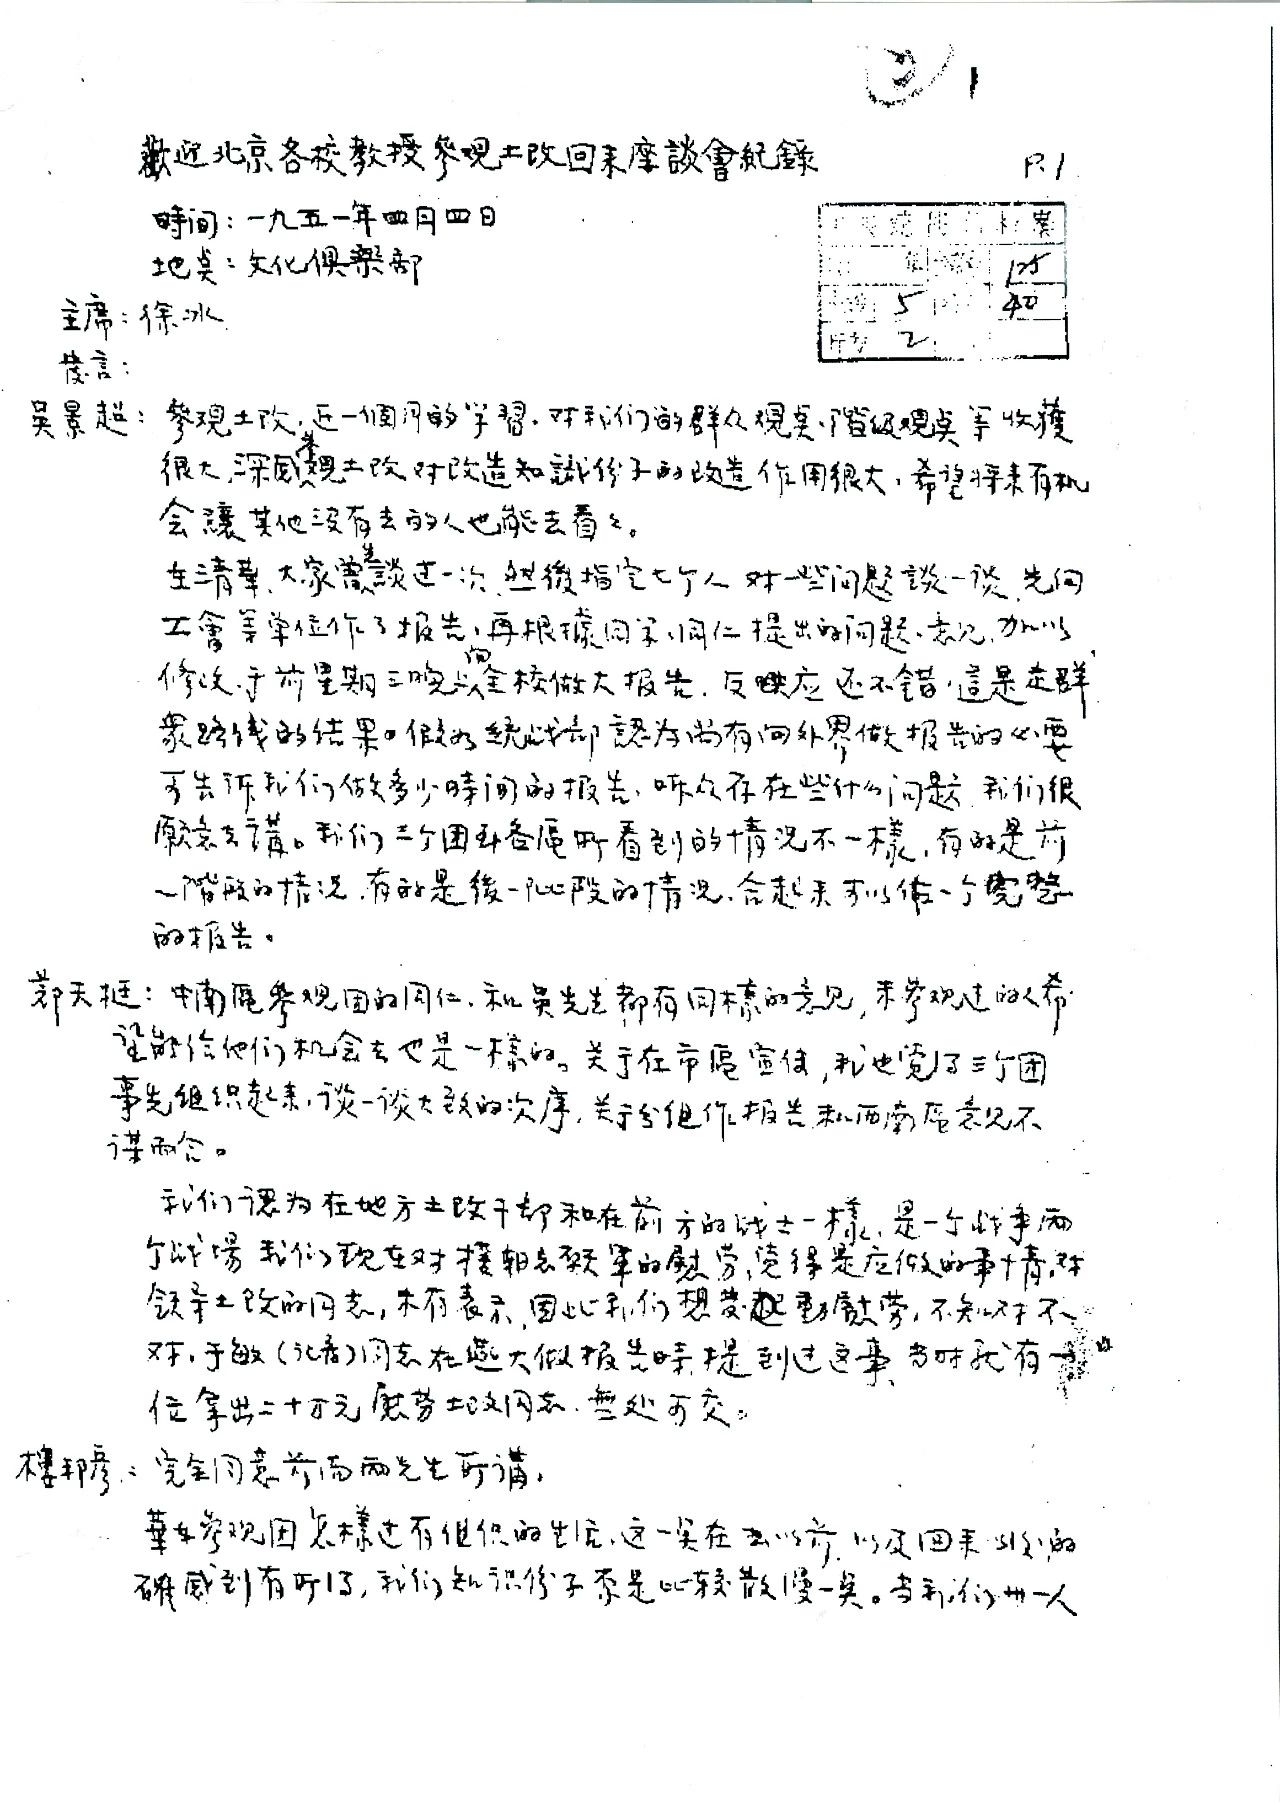 ② 1
歡迎北京各校教授參观土改回来座談會紀錄
P.1
時间：一九五一年四月四日
地点：文化俱樂部
125
5 40
2
主席：徐冰
发言：
吳景超：參观土改，近一個月的学習，对我们的群众观点、階級观点等收獲
很大，深感参观土改对改造知識份子的改造作用很大，希望将来有机
会讓其他没有去的人也能去看看。
在清華，大家曾先談过一次，然後指定七个人对一些问题談一談，先向
工會等单位作了报告，再根據同学、同仁提出的问题、意见，加以
修改，于前星期三晚向全校做大报告，反映应还不錯，這是走群
衆路线的结果。假如統战部認为尚有向外界做报告的必要
可告诉我们做多少時间的报告，听众存在些什么问题，我们很
願意去講。我们三个团到各區所看到的情况不一樣，有的是前
一階段的情况，有的是後一阶段的情况，合起来可以做一个完整
的报告。
郑天挺：中南區參观团的同仁，和吳先生都有同樣的意见，未參观过的人希
望能给他们机会去也是一樣的。关于在市區宣传，我也觉得三个团
事先组织起来，谈一谈大致的次序，关于分组作报告和西南區意见不
谋而合。
我们認为在地方土改干部和在前方的战士一樣，是一个战争两
个战場，我们现在对援朝志願軍的慰劳，觉得是应做的事情，对
领导土改的同志，未有表示，因此我们想发起動慰劳，不知对不
对，于敏（记者）同志在燕大做报告時提到过这事，当时就有一
位拿出二十万元慰劳土改同志，無处可交。
樓邦彦：完全同意前面两先生所講。
華东參观团怎樣过有组织的生活，这一点在去以前，以及回来以後，的
確感到有所得，我们知识份子原是比较散漫一点。当我们卅一人